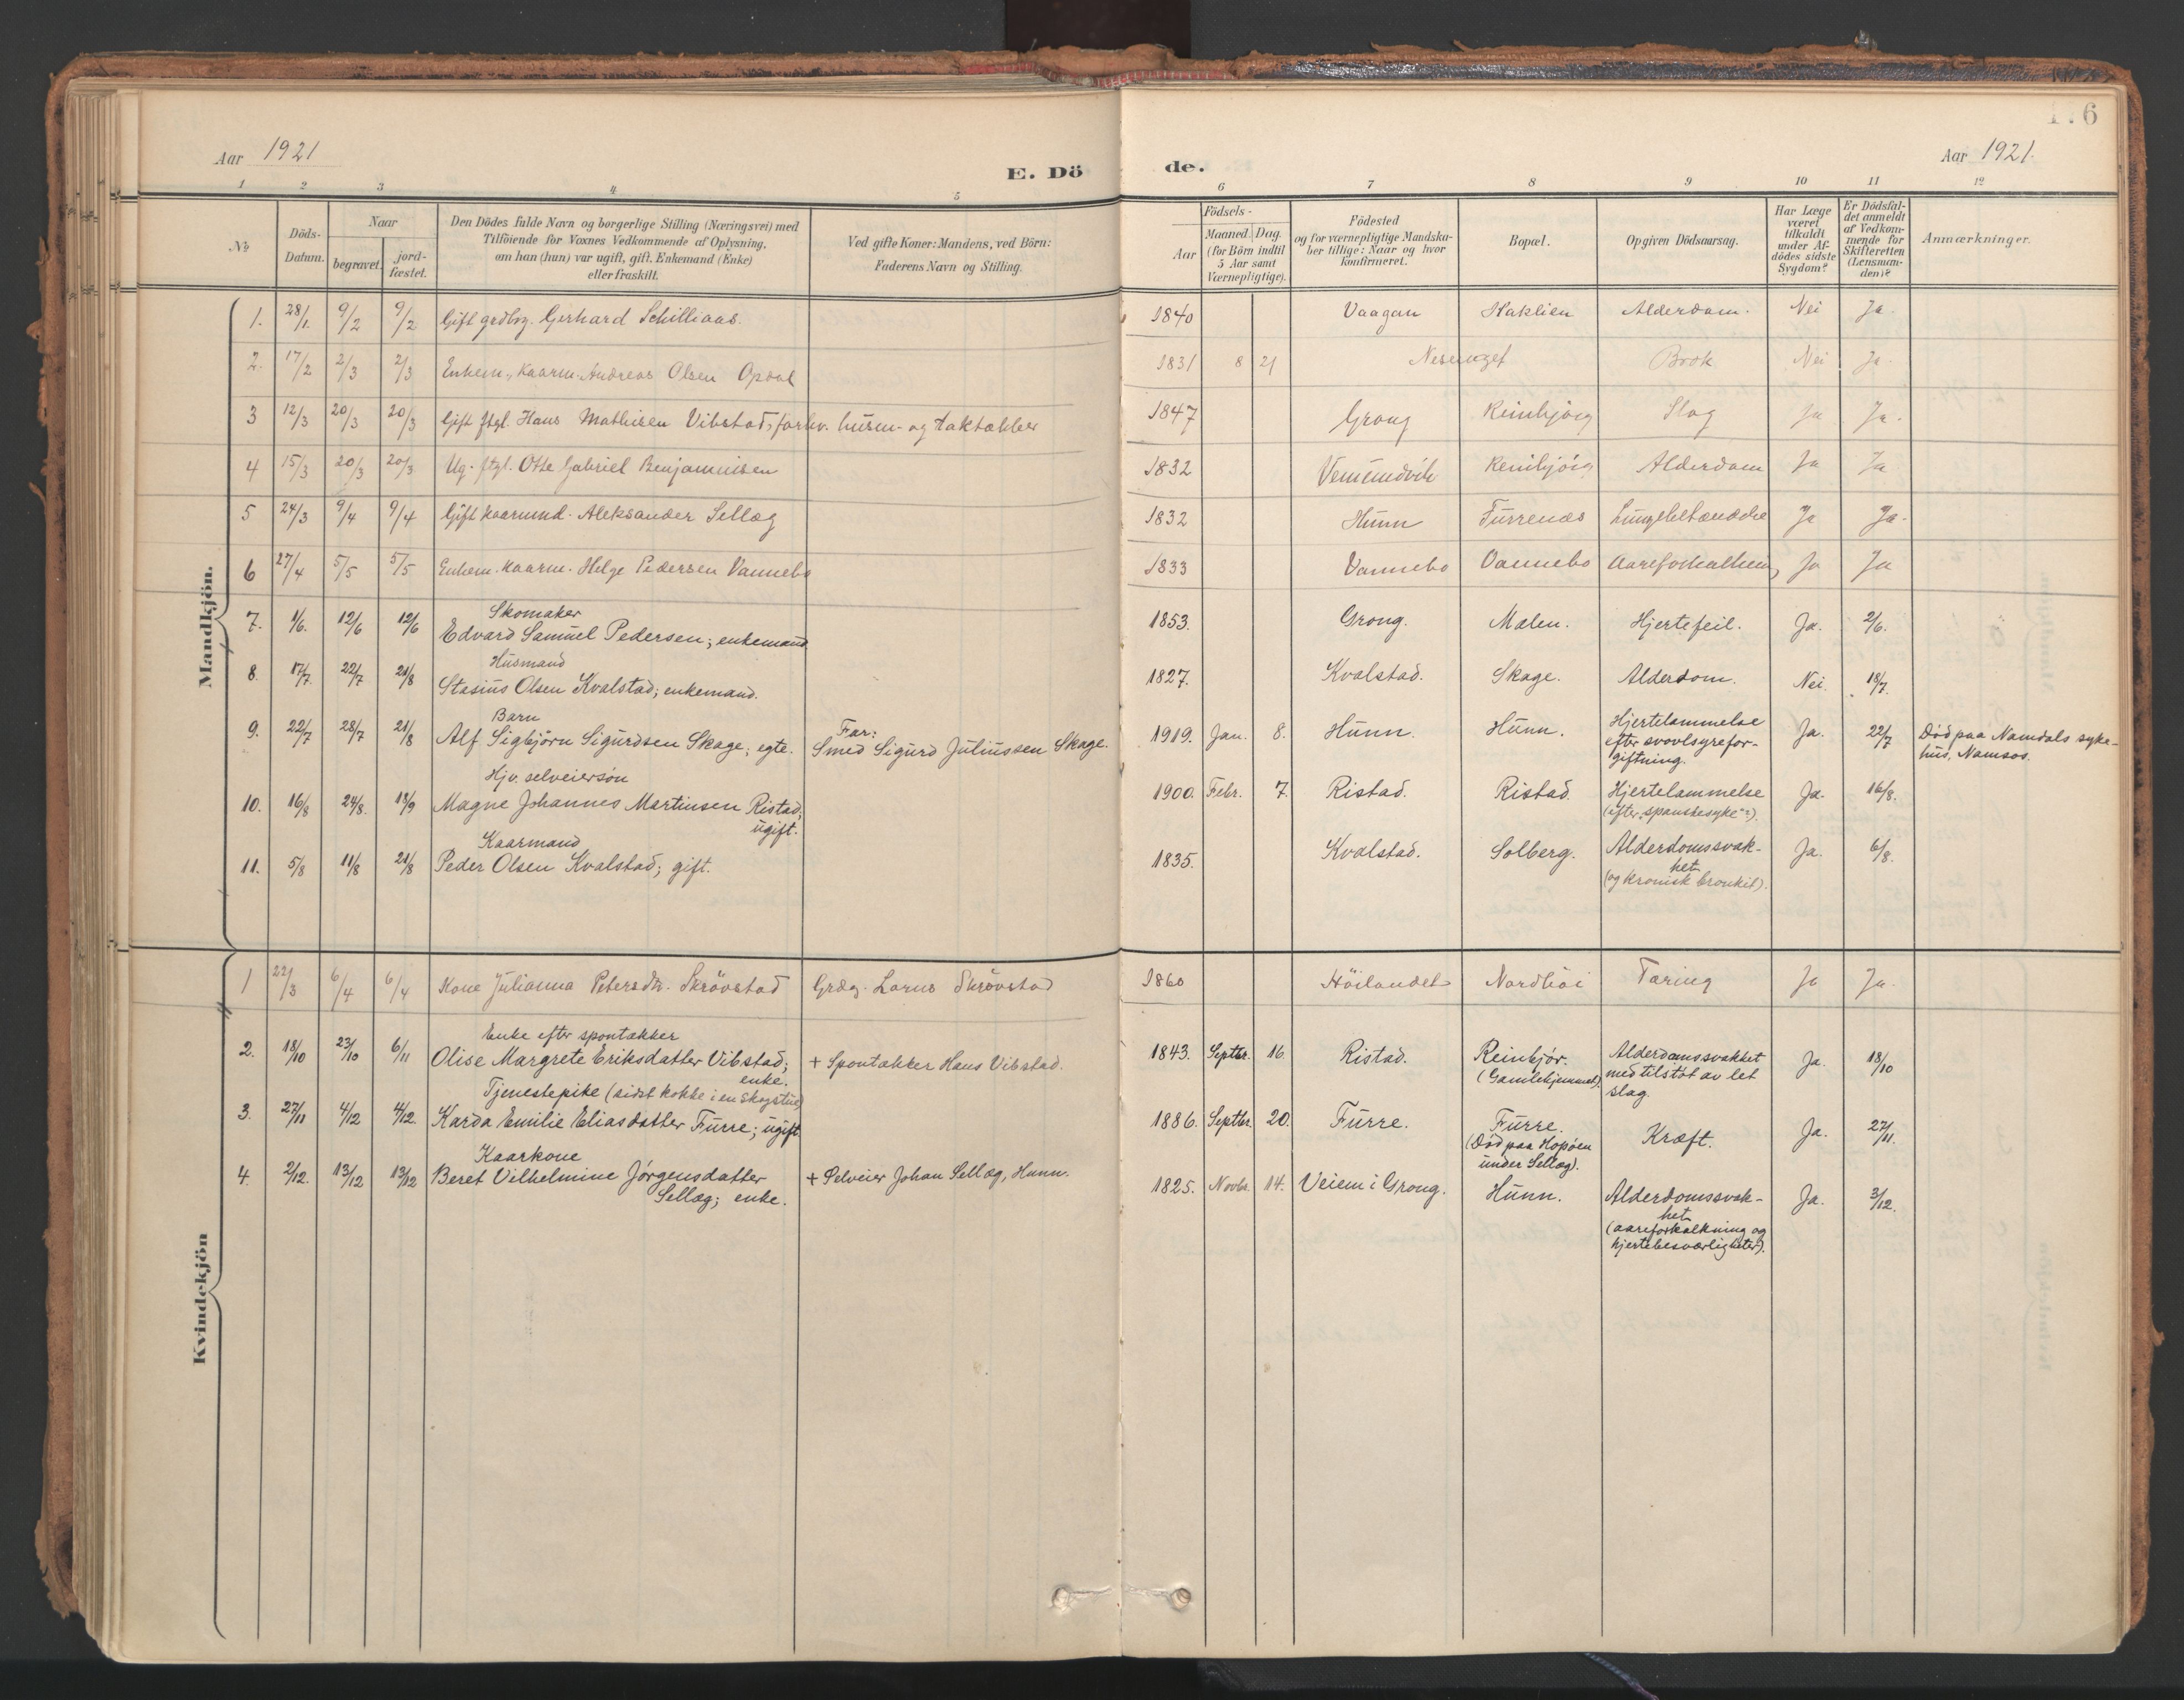 Aar 1921
E. Dö de.
Aar 1921.
6
1 2 3 4 5 6 7 8 9 10 11 12
No
Döds-Datum.
Naar
begravet.
jordfæstet.
Den Dödes fulde Navn og borgerlige Stilling (Næringsvei) med
Tilföiende for Voxnes Vedkommende af Oplysning,
om han (hun) var ugift, gift, Enkemand (Enke)
eller fraskilt.
Ved gifte Koner: Mandens, ved Börn:
Faderens Navn og Stilling.
Födsels-
Aar
Maaned. Dag.
(for Börn indtil
5 Aar samt
Værnepligtige).
Födested
og for værnepligtige Mandskaber tillige: Naar og hvor
konfirmeret.
Bopæl.
Opgiven Dödsaarsag.
Har Læge
været
tilkaldt
under Afdödes sidste
Sygdom?
Er Dödsfaldet anmeldt
af Vedkommende for
Skifteretten
(Lensmanden)?
Anmærkninger.
Mandkjön.
1. 28/1. 9/2 9/2 Gift grdbrg. Gerhard Schilliaas. 1840 Vaagan Haklien Alderdom. Nei Ja.
2. 17/2 2/3 2/3 Enkem., Kaarm. Andreas Olsen Opdal 1831 8 21 Brok Nei Ja.
3 12/3 20/3 20/3 Gift fsgl. Hans Mathisen Vibstad, forhv. husm- og taktækker 1847 Grong Reinbjörg Slag Ja Ja.
4 15/3 20/3 20/3 Ug. fsgl. Otte Gabriel Benjaminsen 1832 Vemundvik Reinbjörg Alderdom Ja Ja
5 24/3 9/4 9/4 Gift kaarmnd. Aleksander Sellæg 1832 Hunn Furrenæs Lungebetændelse Ja Ja.
6 27/4 5/5 5/5 Enkem. kaarm. Helge Pedersen Vannebo 1833 Vannebo Vannebo Ja Ja
Skomaker
7. 1/6. 12/6 12/6 Edvard Samuel Pedersen; enkemand 1853. Grong. Malen. Hjertefeil. Ja. 2/6.
Husmand
8. 17/7. 22/7 21/8 Stasius Olsen Kvalstad; enkemand. 1827. Kvalstad. Skage. Alderdom. Nei. 18/7.
Barn
9. 22/7 28/7 21/8 Alf Sigbjörn Sigurdsen Skage; egte. Far: Smed Sigurd Juliussen Skage. 1919. Jan. 8. Hunn. Hunn. Hjertelammelse
efter svovlsyreforgiftning. Ja. 22/7 Död paa Namdals sykehus, Namsos.
Hjv. selveiersön
10. 16/8 24/8. 18/9 Magne Johannes Martinsen Ristad;
ugift. 1900. Febr. 7. Ristad. Ristad. Hjertelammelse
(efter "spanskesyke"?). Ja. 16/8.
Kaarmand
11. 5/8 11/8 21/8 Peder Olsen Kvalstad; gift. 1835. Kvalstad. Solberg. Alderdomssvakhet
(og kronisk bronkit). Ja. 6/8.
Kvindekjön
1 22/3 6/4 6/4 Kone Julianna Petersdtr. Skrövstad Grdbg. Skrövstad 1860 Höilandet Nordhöi Tæring Ja Ja.
Enke efter spontækker
2. 18/10 23/10 6/11 Olise Margrete Eriksdatter Vibstad;
enke. + Spontækker Hans Vibstad. 1843. Septbr. 16. Ristad. Reinbjör.
(Gamlehjemmet). Alderdomssvakhet
med tilstöt av let
slag. Ja. 18/10
Tjenestepike (sidst kokke i en skogstue)
3. 27/11 4/12 4/12. Karda Emilie Eliasdatter Furre; ugift. 1886. Septbr. 20. Furre. Furre.
(Död paa Hopöen
under Sellæg). Kræft. Ja. 27/11.
Kaarkone
4. 2/12. 13/12 13/12 Beret Vilhelmine Jörgensdatter
Sellæg; enke. + Selveier Johan Sellæg, Hunn. 1825. Novbr. 14. Veiem i Grong. Hunn. Alderdomssvakhet
(aareforkalkning og
hjertebesværligheter). Ja. 3/12.